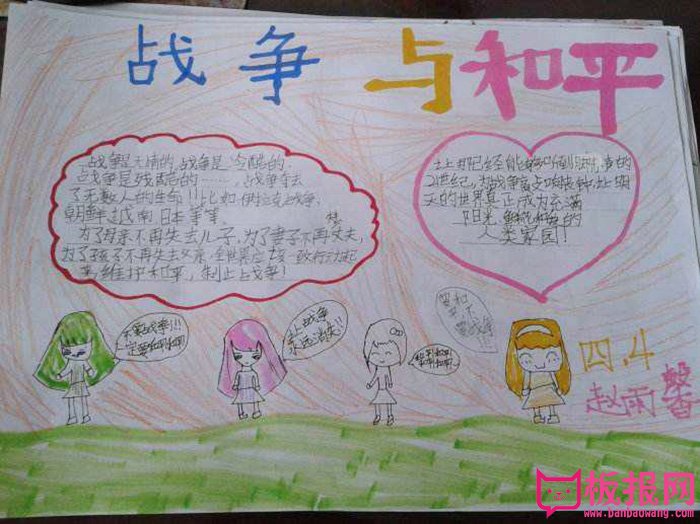 战争与和平
战争是无情的,战争是冷酷的,
战争是残酷的……,战争夺去
了无数人的生命!!!比如伊拉克战争,
朝鲜、越南、日本等等。
为了母亲不再失去儿子,为了妻子不再失丈夫,
为了孩子不再失去父亲,全世界应该一致行动起
来,维护和平,制止战争!
让那已经能
21世纪,为战争敲响丧钟,让明
天的世界真正成为充满
阳光、鲜花的
人类家园!
不要战争!!!
让战争
永远消失!!
要和
平不
要战争
四.4
赵雨馨香
板报网
www.banbaowang.com